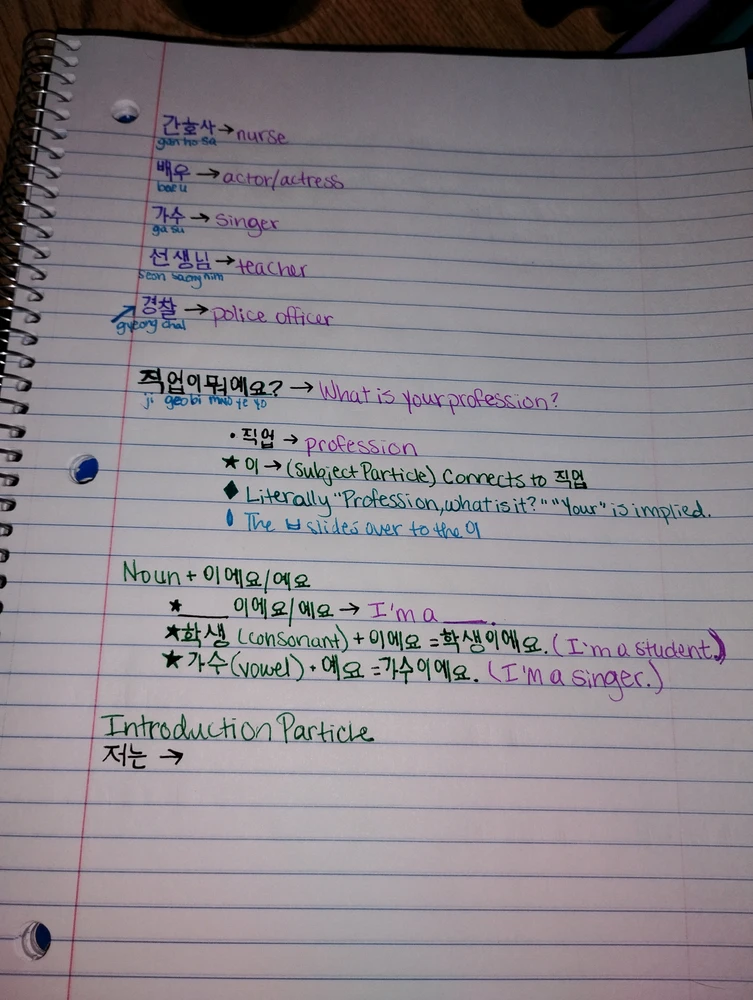 간호사→nurse
gan ho sa
배우→actor/actress
bae u
가수→singer
ga su
선생님→teacher
seon saeng nim
경찰→police officer
gyeong chal
직업이뭐예요?→What is your profession?
ji geobi mwo ye yo
• 직업→profession
★ 이→(Subject Particle) Connects to 직업
◆ Literally "Profession, what is it?" "Your" is implied.
The ㅂ slides over to the 이
Noun + 이에요/예요
★____ 이에요/예요→I'm a ____.
★학생 (consonant) + 이에요 =학생이에요. (I'm a student.)
★가수(vowel) + 예요 =가수이에요. (I'm a singer.)
Introduction Particle
저는→